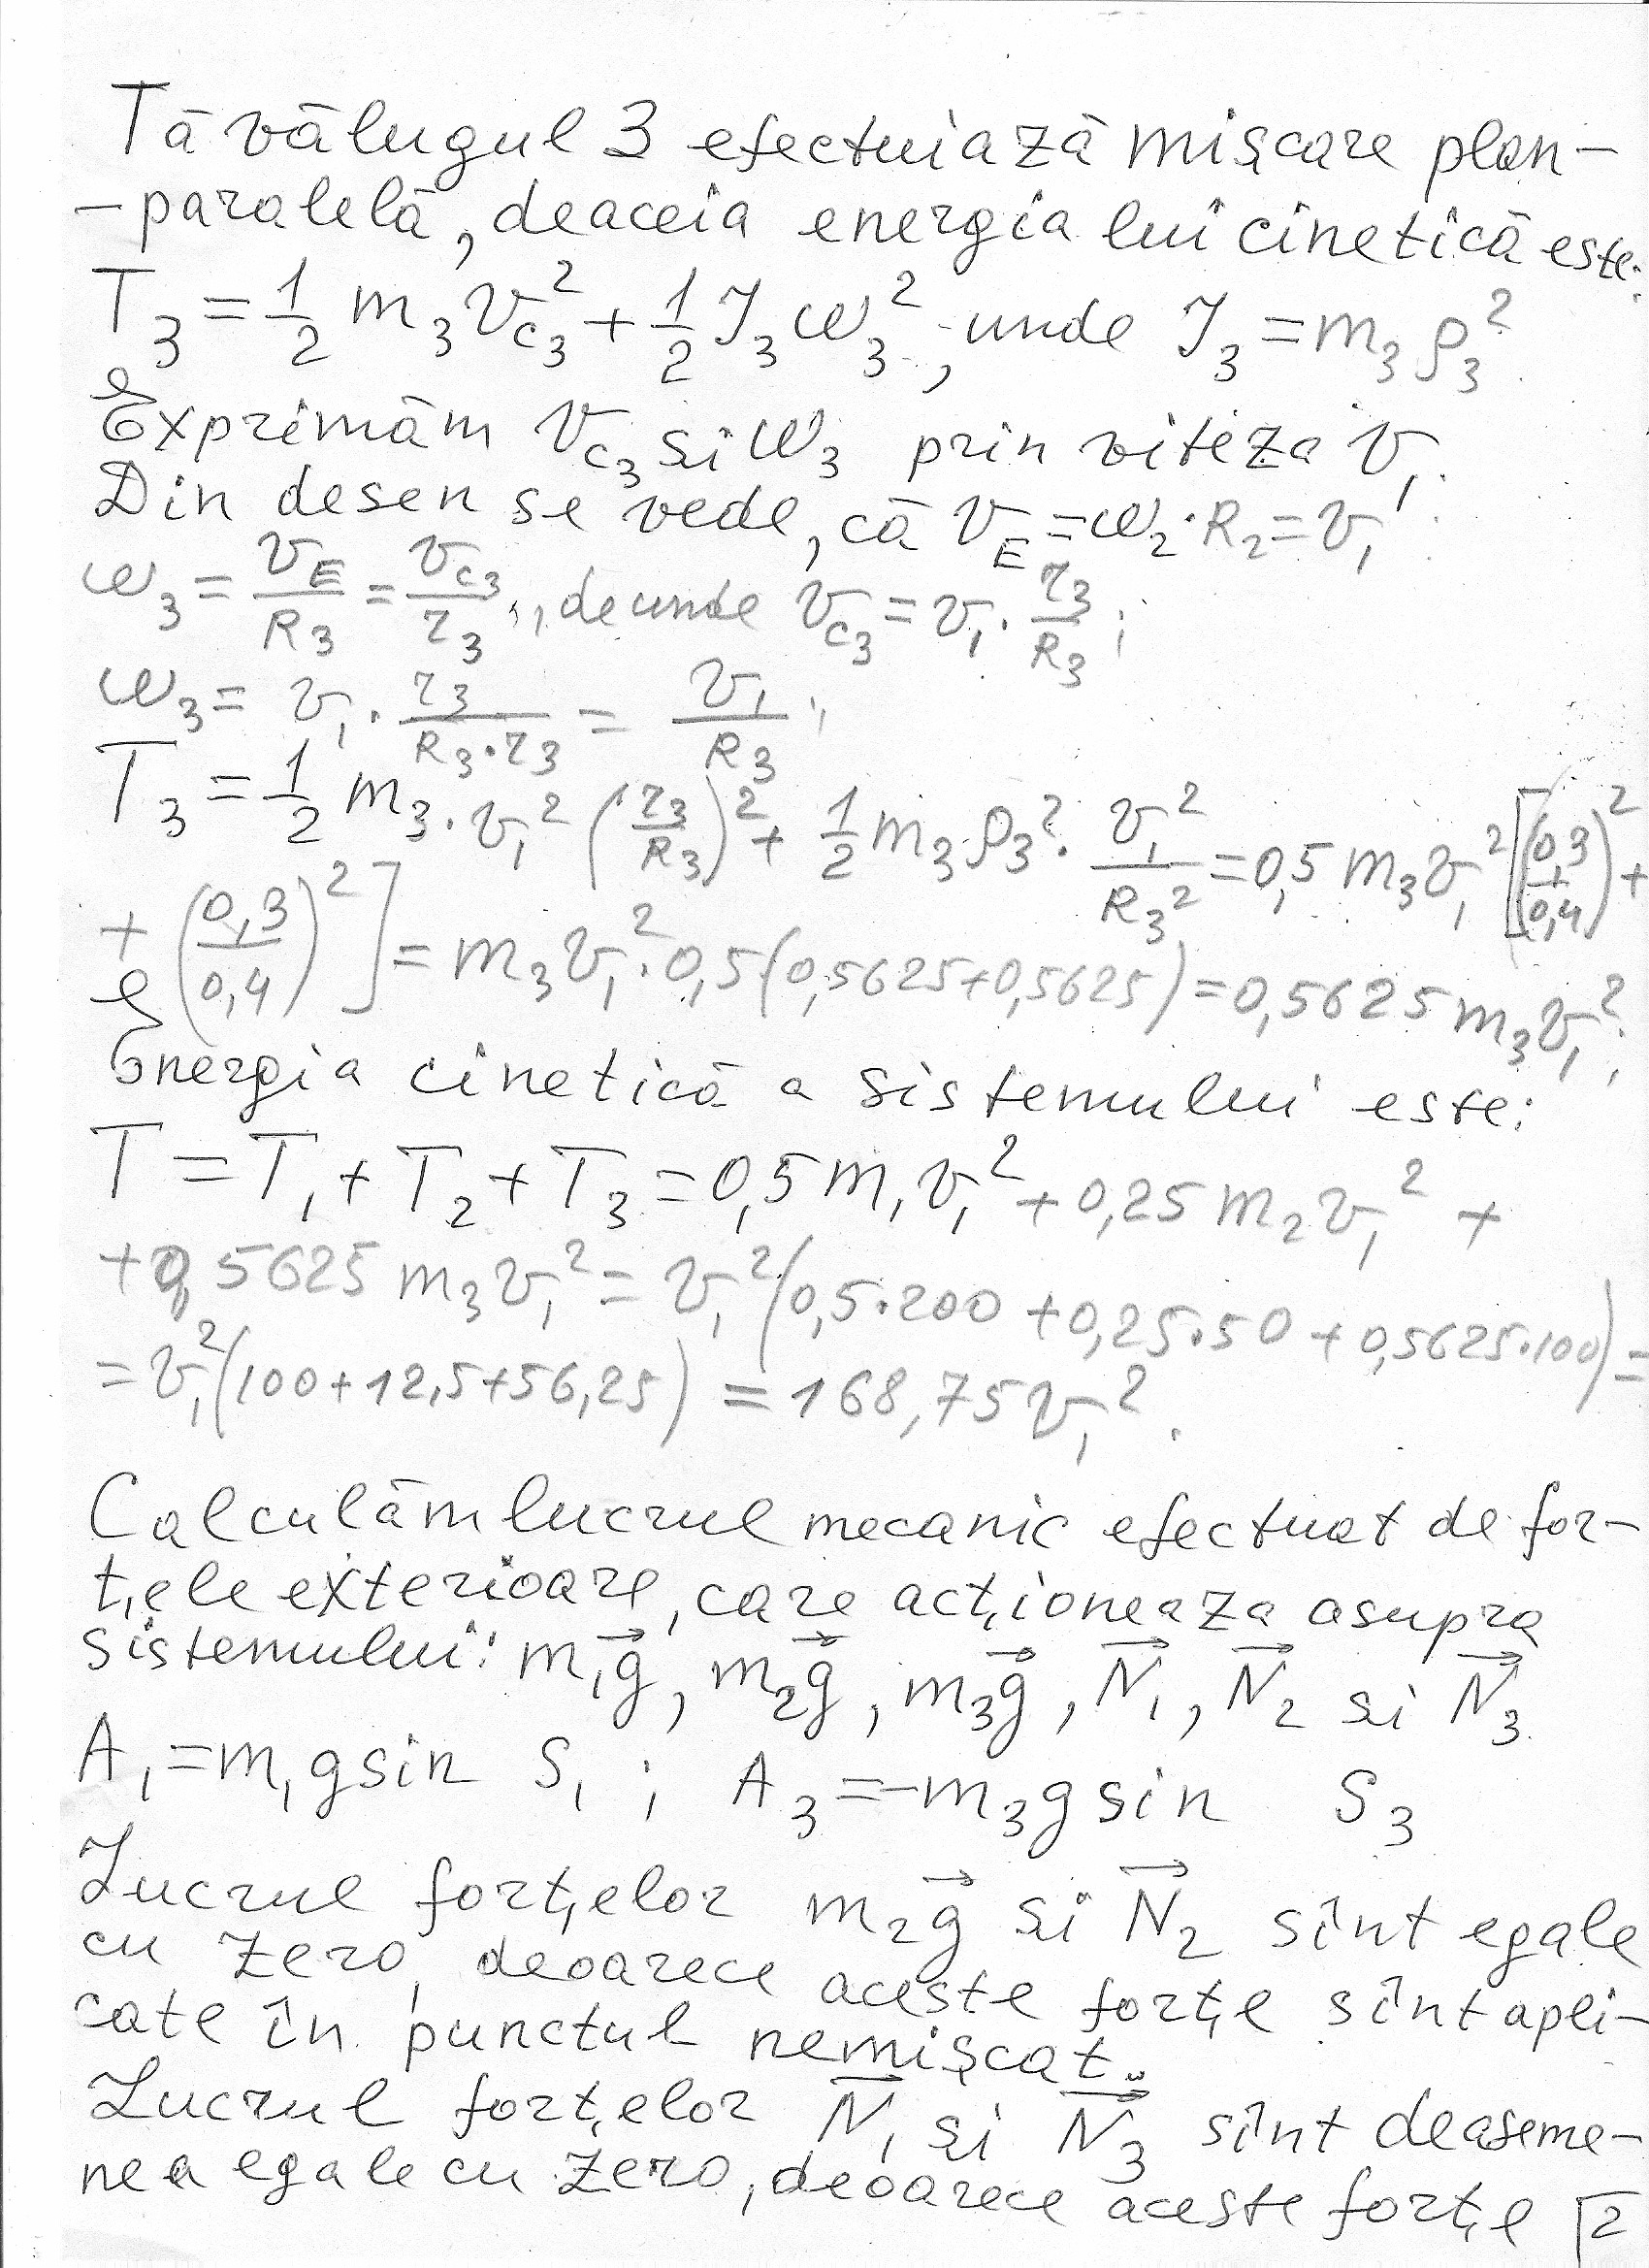 Tăvălugul 3 efectuiază mișcare plan-
-paralelă, deaceia energia lui cinetică este:
T₃ = 1/2 m₃ v_C₃² + 1/2 J₃ ω₃², unde J₃ = m₃ρ₃².
Exprimăm v_C₃ și ω₃ prin viteza v₁.
Din desen se vede, că v_E = ω₂·R₂ = v₁.
ω₃ = v_E/R₃ = v_C₃/r₃; de unde v_C₃ = v₁·r₃/R₃;
ω₃ = v₁·r₃/(R₃·r₃) = v₁/R₃;
T₃ = 1/2 m₃·v₁²(r₃/R₃)² + 1/2 m₃ρ₃²·v₁²/R₃² = 0,5 m₃v₁²[(0,3/0,4)² +
+ (0,3/0,4)²] = m₃v₁²·0,5(0,5625+0,5625) = 0,5625 m₃v₁²;
Energia cinetică a sistemului este:
T = T₁ + T₂ + T₃ = 0,5 m₁v₁² + 0,25 m₂v₁² +
+ 0,5625 m₃v₁² = v₁²(0,5·200 + 0,25·50 + 0,5625·100) =
= v₁²(100+12,5+56,25) = 168,75v₁².
Calculăm lucrul mecanic efectuat de for-
țele exterioare, care acționeaza asupra
sistemului: m₁g⃗, m₂g⃗, m₃g⃗, N⃗₁, N⃗₂ și N⃗₃.
A₁ = m₁g sin S₁; A₃ = -m₃g sin S₃
Lucrul forțelor m₂g⃗ și N⃗₂ sînt egale
cu zero, deoarece aceste forțe sînt apli-
cate în punctul nemișcat.
Lucrul forțelor N⃗₁ și N⃗₃ sînt deaseme-
nea egale cu zero, deoarece aceste forțe 2